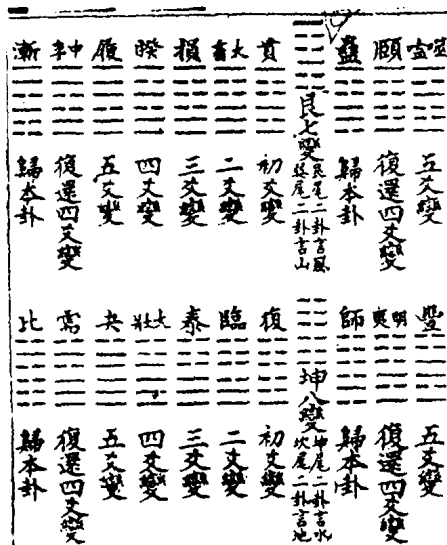 噬嗑 五爻變
頤 復還四爻變
蠱 歸本卦
艮七變 艮尾二卦言風
巽尾二卦言山
賁 初爻變
大畜 二爻變
損 三爻變
睽 四爻變
履 五爻變
中孚 復還四爻變
漸 歸本卦
豐 五爻變
明夷 復還四爻變
師 歸本卦
坤八變 坤尾二卦言水
坎尾二卦言地
復 初爻變
臨 二爻變
泰 三爻變
大壯 四爻變
夬 五爻變
需 復還四爻變
比 歸本卦